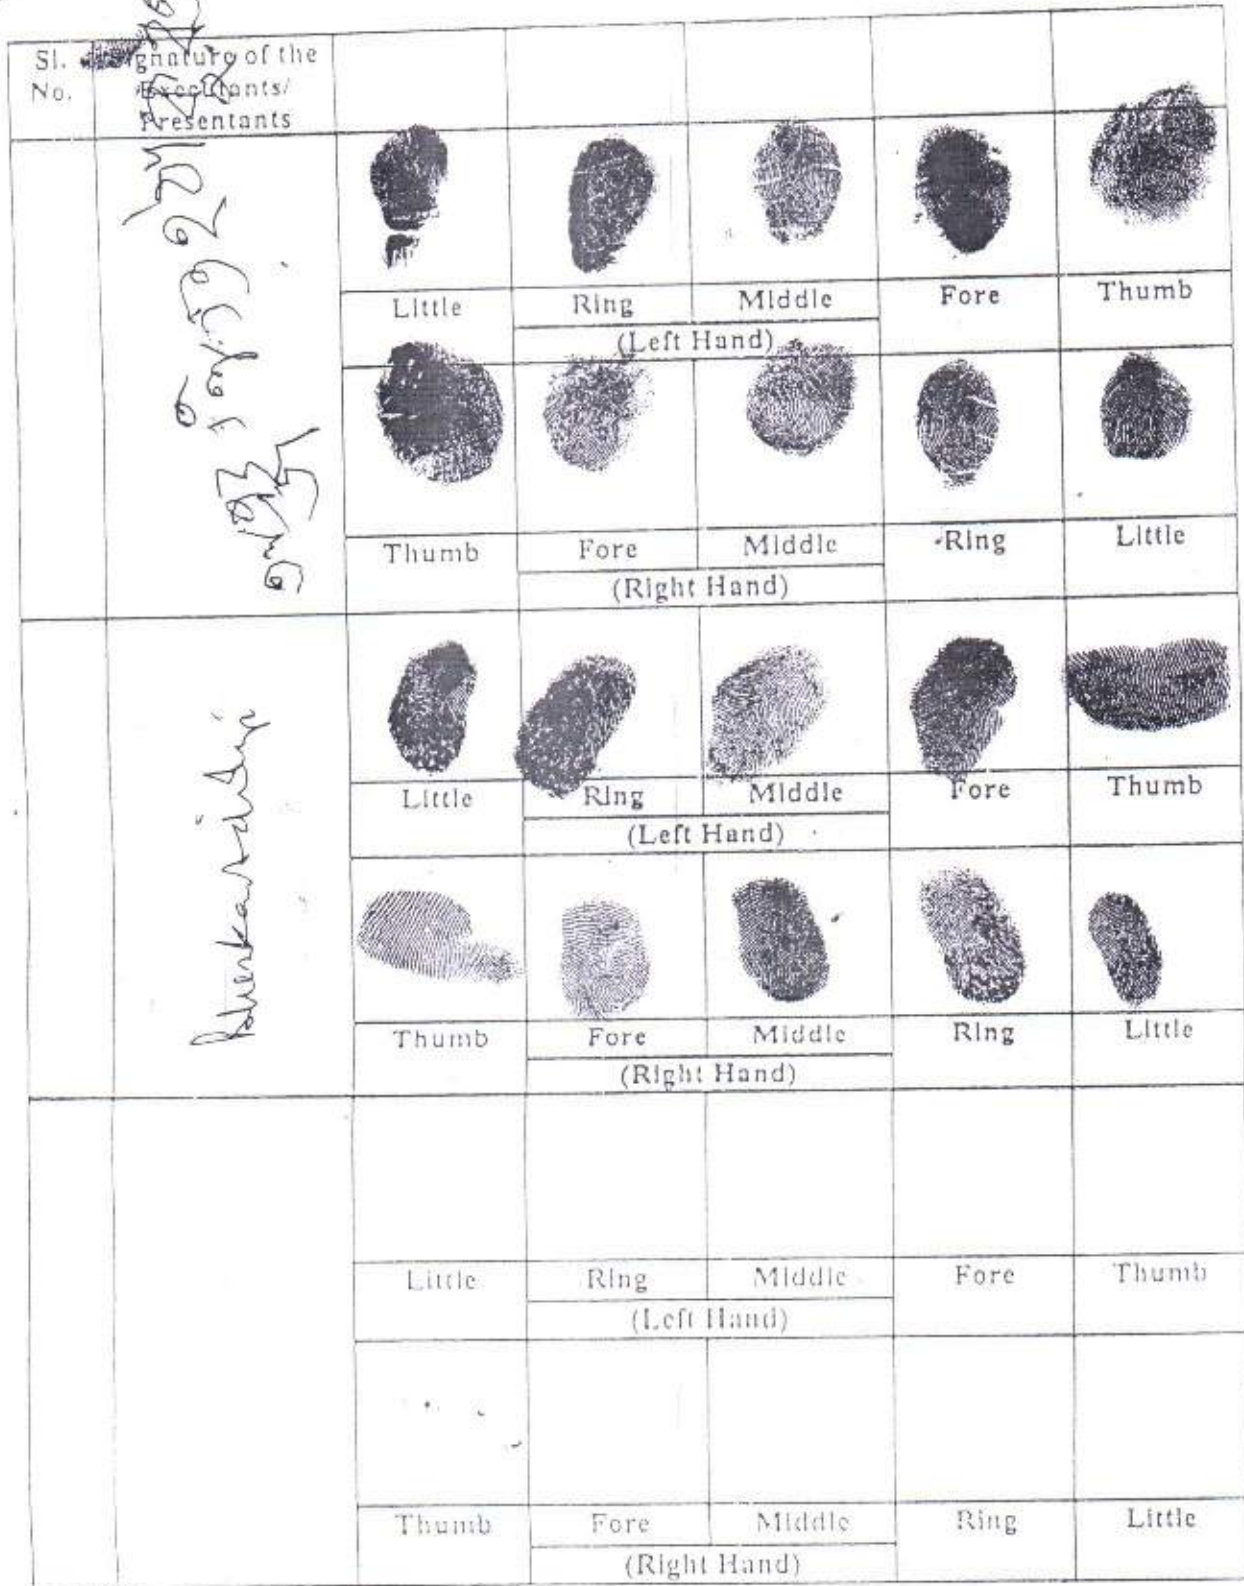 Sl. Signature of the
No. Executants/
Presentants
Little Ring Middle Fore Thumb
(Left Hand)
Thumb Fore Middle Ring Little
(Right Hand)
Little Ring Middle Fore Thumb
(Left Hand)
Thumb Fore Middle Ring Little
(Right Hand)
Little Ring Middle Fore Thumb
(Left Hand)
Thumb Fore Middle Ring Little
(Right Hand)